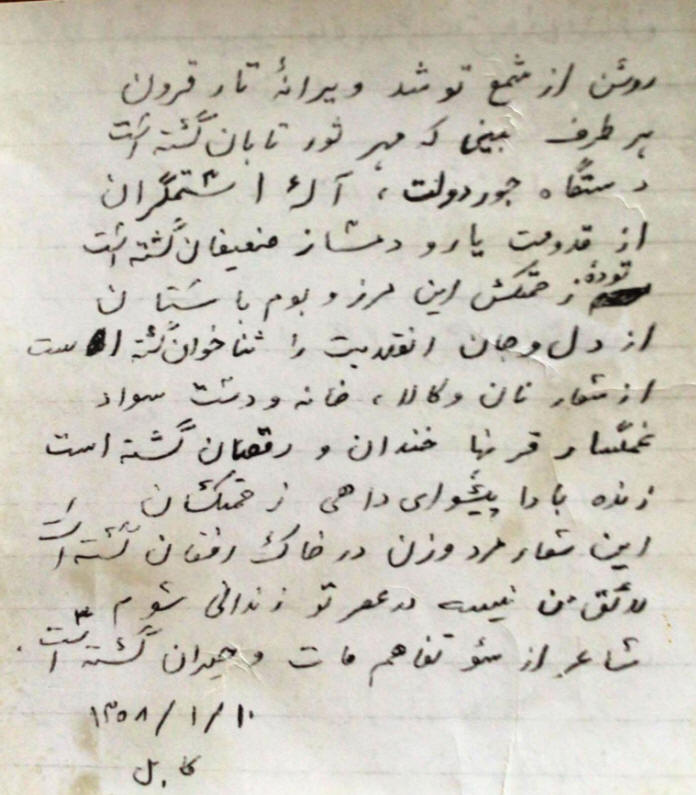 روشن از شمع تو شد ویرانهٔ تار قرون
هر طرف بینی که مهر نور تابان گشته است
دستگاه جور دولت، آلهٔ استمگران
از قدومت یار و دمساز ضعیفان گشته است
تودهٔ زحمتکش این مرز و بوم باستان
از دل و جان انقلابت را ثنا خوان گشته است
از شعار نان و کالا، خانه و دشت سواد
غمگسار قرنها خندان و رقصان گشته است
زنده بادا پیشوای داهی زحمتکشان
این شعار مرد و زن در خاک افغان گشته است
لائق من نیست در عصر تو زندانی شوم
شاعر از سؤ تفاهم مات و حیران گشته است.
۱۳۵۸/۱/۱۰
کابل